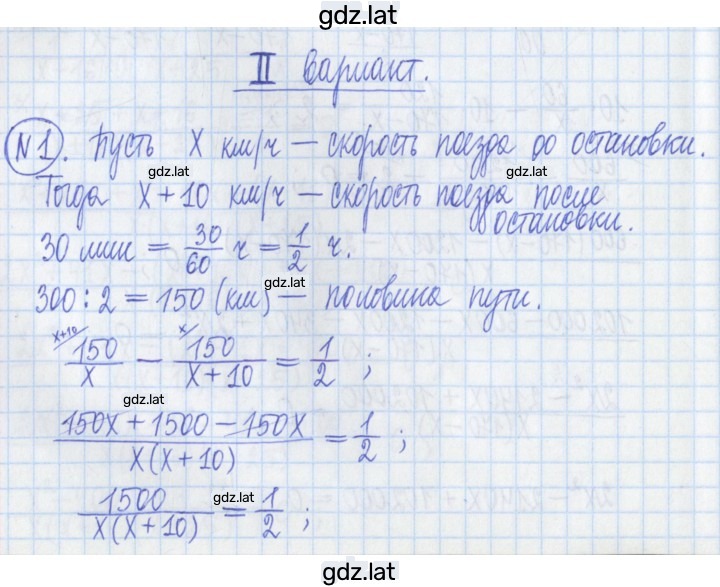 gdz.lat
II Вариант.
№1. Пусть x км/ч — скорость поезда до остановки.
gdz.lat gdz.lat
Тогда x + 10 км/ч — скорость поезда после остановки.
30 мин = 30/60 ч = 1/2 ч.
gdz.lat
300 : 2 = 150 (км) — половина пути.
x+10/ 150/x − x/ 150/(x + 10) = 1/2 ;
gdz.lat
(150x + 1500 − 150x)/(x(x + 10)) = 1/2 ;
gdz.lat
1500/(x(x + 10)) = 1/2 ;
gdz.lat
gdz.lat